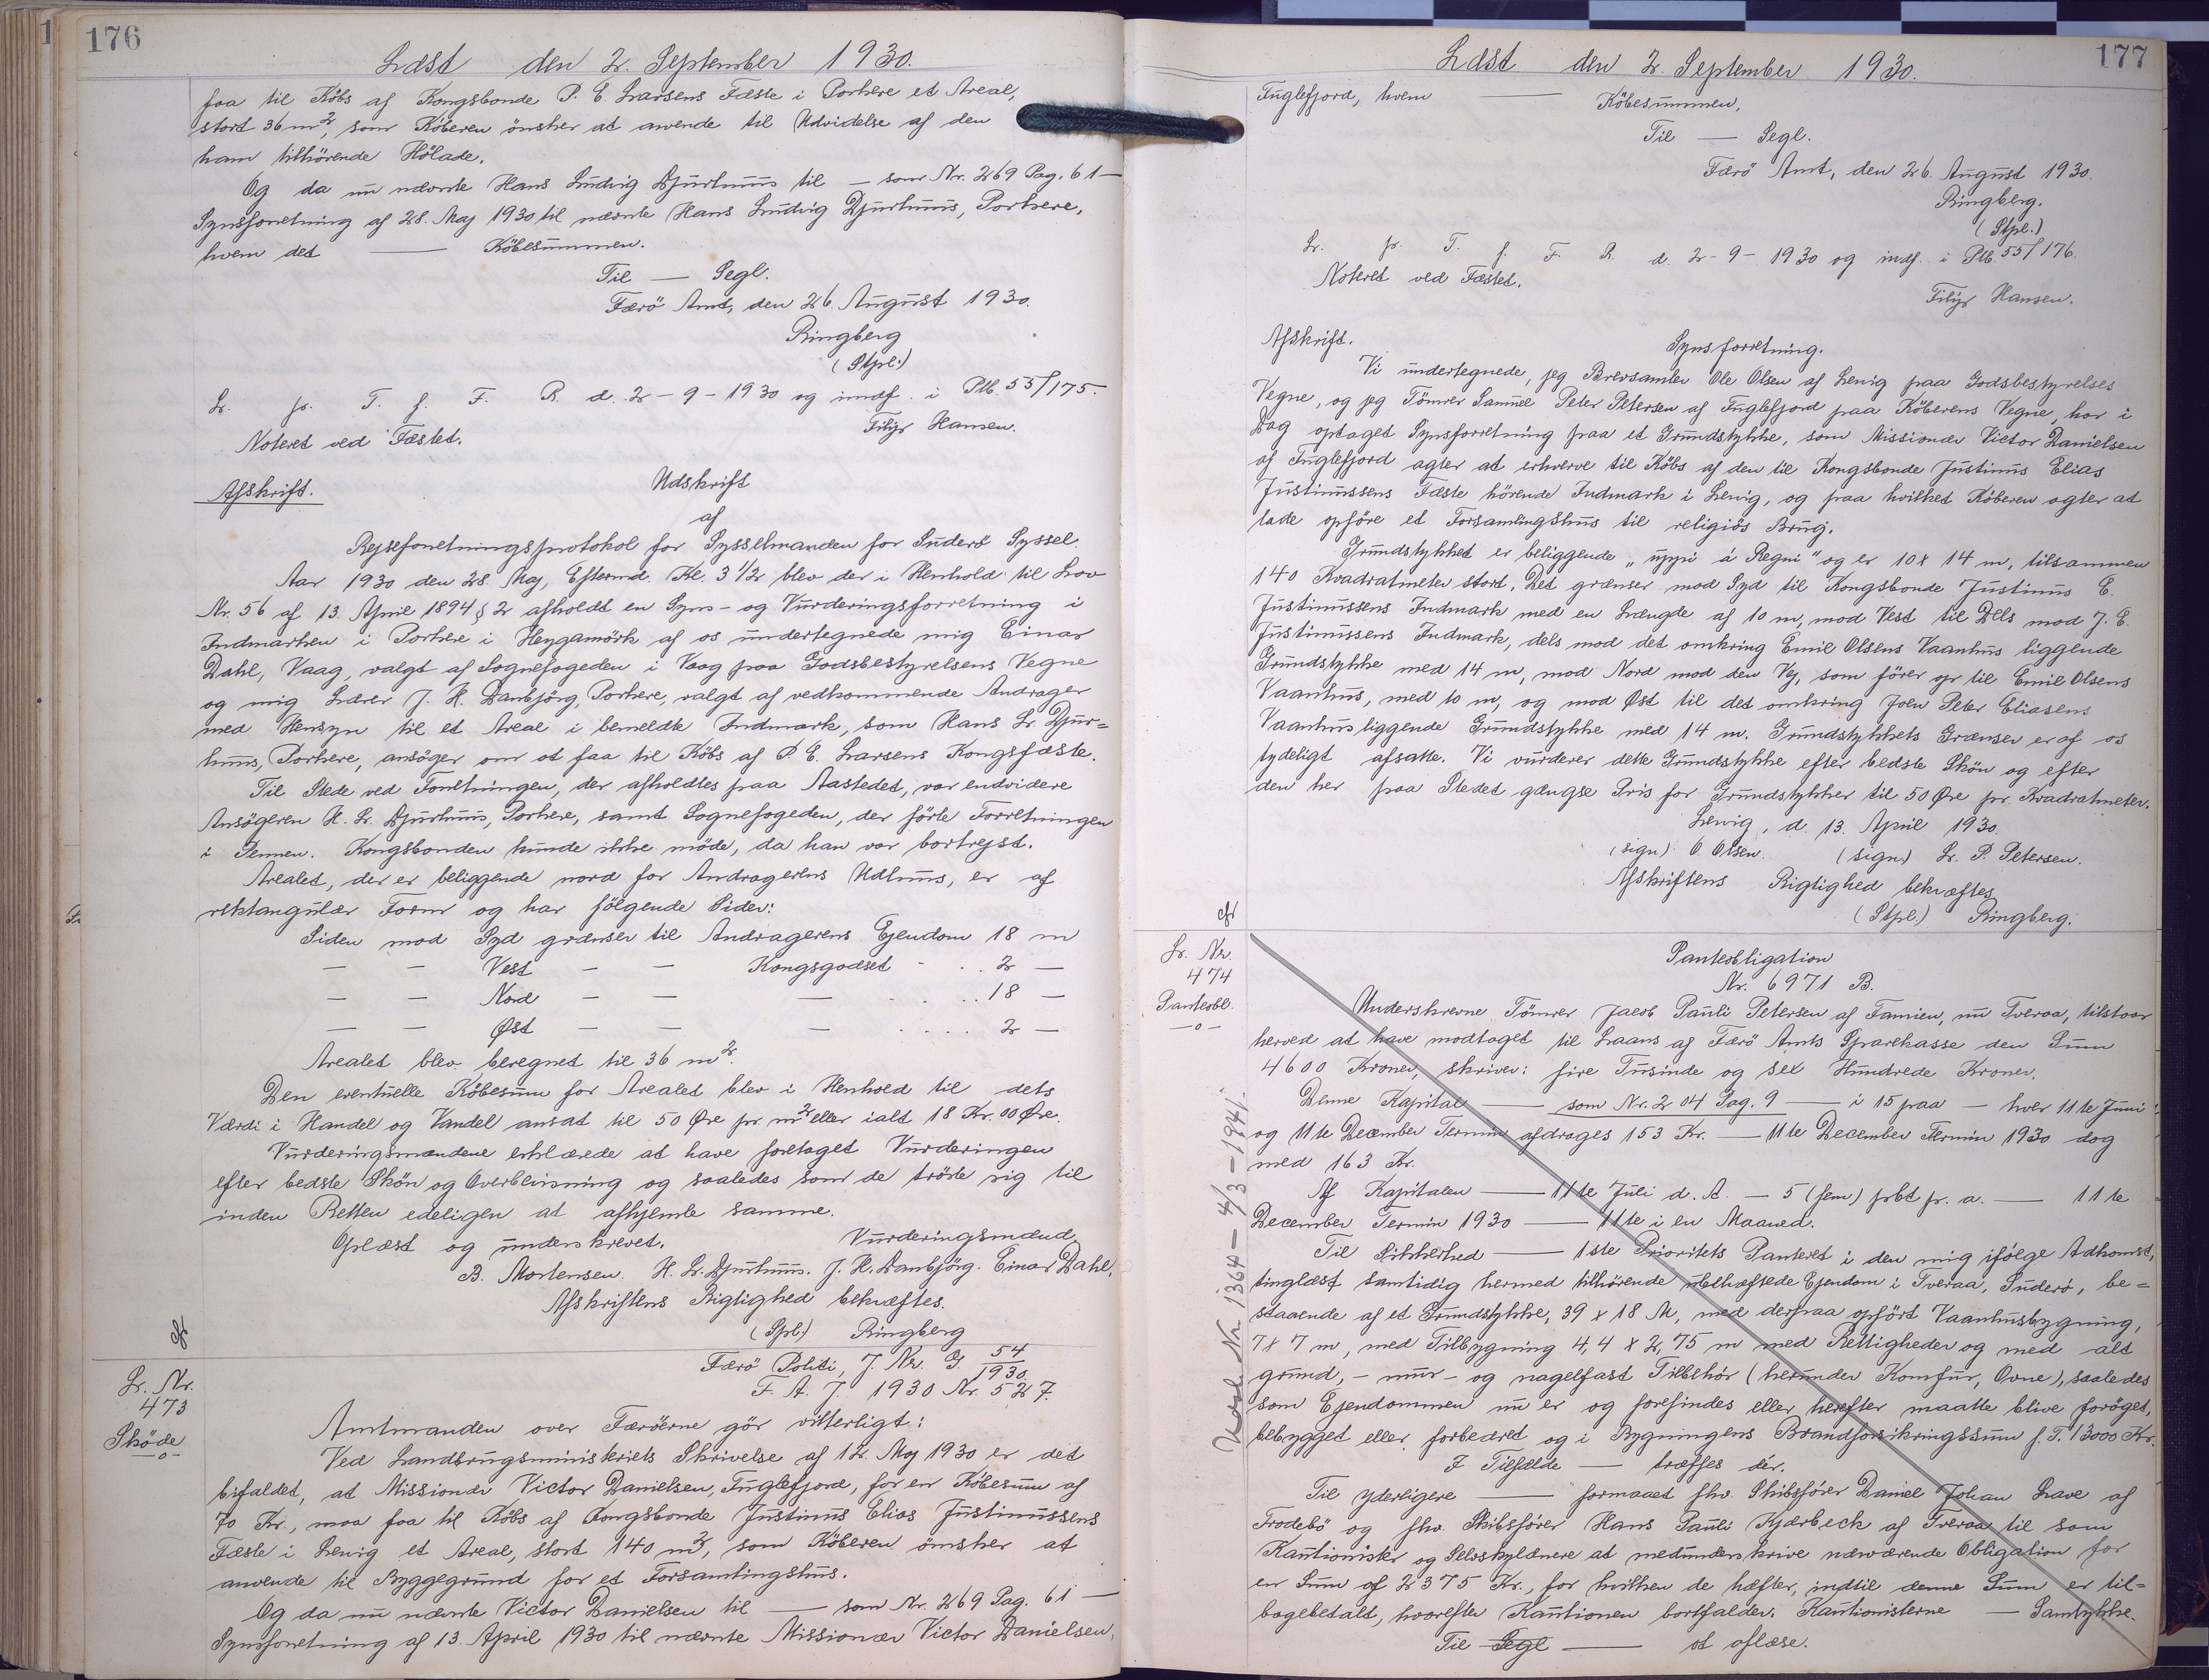 176
Læst den 2. September 1930.
faa til Købs af Kongsbonde P. E. Larsens Fæste i Porkere et Areal,
stort 36 m², som Køberen ønsker at anvende til Udvidelse af den
ham tilhörende Hölade.
Og da nu nævnte Hans Ludvig Djurhuus til — som Nr. 269 Pag. 61 —
Synsforretning af 28. Maj 1930 til nævnte Hans Ludvig Djurhuus, Porkere,
hvem det — Köbesummen.
Til — Segl.
Færö Amt, den 26. August 1930.
Ringberg
(Stpl.)
Lr. pr. T. f. F. R. d. 2-9-1930 og indf. i Ptb. 55/175.
Noteret ved Fæstet.
Filip Hansen.
Afskrift.
Udskrift
af
Rejseforretningsprotokol for Sysselmanden for Suderö Syssel.
Aar 1930 den 28. Maj, Eftermd. Kl. 3 1/2 blev der i Henhold til Lov
Nr. 56 af 13. April 1894 § 2 afholdt en Syns- og Vurderingsforretning i
Indmarken i Porkere i Heygamörk af os undertegnede mig Einar
Dahl, Vaag, valgt af Sognefogeden i Vaag paa Godsbestyrelsens Vegne
og mig Lærer J. H. Danbjörg, Porkere, valgt af vedkommende Andrager
med Hensyn til et Areal i bemeldte Indmark, som Hans L. Djur=
huus, Porkere, ansöger om at faa til Købs af P. E. Larsens Kongsfæste.
Til Stede ved Forretningen, der afholdtes paa Aastedet, var endvidere
Ansögeren H. L. Djurhuus, Porkere, samt Sognefogeden, der förte Forretningen
i Pennen. Kongsbonden kunde ikke möde, da han var bortrejst.
Arealet, der er beliggende nord for Andragerens Udhuus, er af
rektangulær Form og har fölgende Sider:
Siden mod Syd grænser til Andragerens Ejendom 18 m
— — Vest — — Kongsgodset . . . 2 —
— — Nord — — — . . . . 18 —
— — Øst — — — . . . . 2 —
Arealet blev beregnet til 36 m².
Den eventuelle Köbesum for Arealet blev i Henhold til dets
Værdi i Handel og Vandel ansat til 50 Øre pr. m² eller ialt 18 Kr. 00 Øre.
Vurderingsmændene erklærede at have foretaget Vurderingen
efter bedste Skön og Overbevisning og saaledes som de tröste sig til
inden Retten edeligen at afhjemle samme.
Oplæst og underskrevet.
Vurderingsmænd.
B. Mortensen. H. L. Djurhuus. J. H. Danbjörg. Einar Dahl.
Afskriftens Rigtighed bekræftes.
(Spl.) Ringberg
Lr. Nr.
473
Sköde
—o—
Færö Politi, J. Nr. G. 54/1930.
F. A. J. 1930 Nr. 527.
Amtmanden over Færöerne gör vitterligt:
Ved Landbrugsministeriets Skrivelse af 12. Maj 1930 er det
bifaldet, at Missionær Victor Danielsen, Fuglefjord, for en Köbesum af
70 Kr., maa faa til Købs af Kongsbonde Justinus Elias Justinussens
Fæste i Lervig et Areal, stort 140 m², som Køberen ønsker at
anvende til Byggegrund for et Forsamlingshus.
Og da nu nævnte Victor Danielsen til — som Nr. 269 Pag. 61 —
Synsforretning af 13. April 1930 til nævnte Missionær Victor Danielsen,
177
Læst den 2. September 1930.
Fuglefjord, hvem — Köbesummen,
Til — Segl.
Færö Amt, den 26. August 1930.
Ringberg.
(Stpl.)
Lr. pr. T. f. F. R. d. 2-9-1930 og indf. i Ptb. 55/176.
Noteret ved Fæstet.
Filip Hansen.
Afskrift.
Synsforretning.
Vi undertegnede, jeg Brevsamler Ole Olsen af Lervig paa Godsbestyrelses
Vegne, og jeg Tömrer Samuel Peter Petersen af Fuglefjord paa Køberens Vegne, har i
Dag optaget Synsforretning paa et Grundstykke, som Missionær Victor Danielsen
af Fuglefjord agter at erhverve til Købs af den til Kongsbonde Justinus Elias
Justinussens Fæste hörende Indmark i Lervig, og paa hvilket Køberen agter at
lade opföre et Forsamlingshus til religiøs Brug.
Grundstykket er beliggende „uppi áRegni" og er 10 x 14 m, tilsammen
140 Kvadratmeter stort. Det grænser mod Syd til Kongsbonde Justinus E.
Justinussens Indmark med en Længde af 10 m, mod Vest til Dels mod J. E.
Justinussens Indmark, dels mod det omkring Emil Olsens Vaanhus liggende
Grundstykke med 14 m, mod Nord mod den Vej, som förer op til Emil Olsens
Vaanhus, med 10 m, og mod Øst til det omkring Joen Peter Eliasens
Vaanhus liggende Grundstykke med 14 m. Grundstykkets Grænser er af os
tydeligt afsatte. Vi vurderer dette Grundstykke efter bedste Skön og efter
den her paa Stedet gængse Pris for Grundstykker til 50 Øre pr. Kvadratmeter.
Lervig, d. 13. April 1930.
(sign) O. Olsen. (sign.) S. P. Petersen.
Afskriftens Rigtighed bekræftes
(Stpl.) Ringberg.
Lr. Nr.
474
Pantobl.
—o—
Panteobligation
Nr. 6971 B.
Underskrevne Tömrer Jacob Pauli Petersen af Famien, nu Tveraa, tilstaar
herved at have modtaget til Laans af Færö Amts Sparekasse den Sum
4600 Kroner, skriver: fire Tusinde og sex Hundrede Kroner.
Denne Kapital — som Nr. 204 Pag. 9 — i 15 paa — hver 11te Juni
og 11te December Termin afdrages 153 Kr. — 11te December Termin 1930 dog
med 163 Kr.
Af Kapitalen — 11te Juli d. A. — 5 (fem) pCt p. a. — 11te
December Termin 1930 — 11te i en Maaned.
Til Sikkerhed — 1ste Prioritets Panteret i den mig ifölge Adkomst,
tinglæst samtidig hermed tilhørende ubehæftede Ejendom i Tveraa, Suderö, be=
staaende af et Grundstykke, 39 x 18 M, med derpaa opfört Vaanhusbygning,
7 x 7 m, med Tilbygning 4,4 x 2,75 m med Rettigheder og med alt
grund,- mur- og nagelfast Tilbehör (herunder Komfur, Ovne), saaledes
som Ejendommen nu er og forefindes eller herefter maatte blive foröget,
bebygget eller forbedret og i Bygningens Brandforsikringssum f. T. 13000 Kr.
I Tilfælde — træffes der.
Til yderligere — formaaet fhv. Skibsfører Daniel Johan Lave af
Frodebö og fhv. Skibsfører Hans Pauli Kjærbeck af Tveraa til som
Kautionister og Selvskyldnere at medunderskrive nærværende Obligation for
en Sum af 2375 Kr., for hvilken de hæfter, indtil denne Sum er til=
bagebetalt, hvorefter Kautionen bortfalder. Kautionisterne — Samtykke.
Til Segl — at aflæse.
Nr. 1364 - 4/3 - 1941.